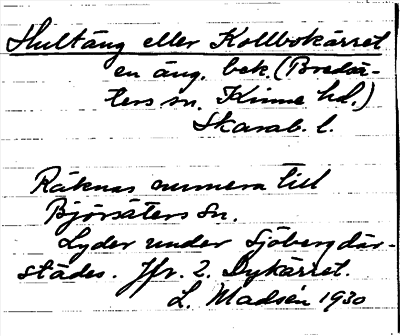 Hultäng eller Kollbokärret
en äng. bek. (Bredsä-
ters sn. Kinne hd.)
Skarab. l.
Räknas numera till
Björsäters Sn.
Lyder under Sjöberg där-
städes. Jfr. 2. Dykärret.
L. Madsén 1930